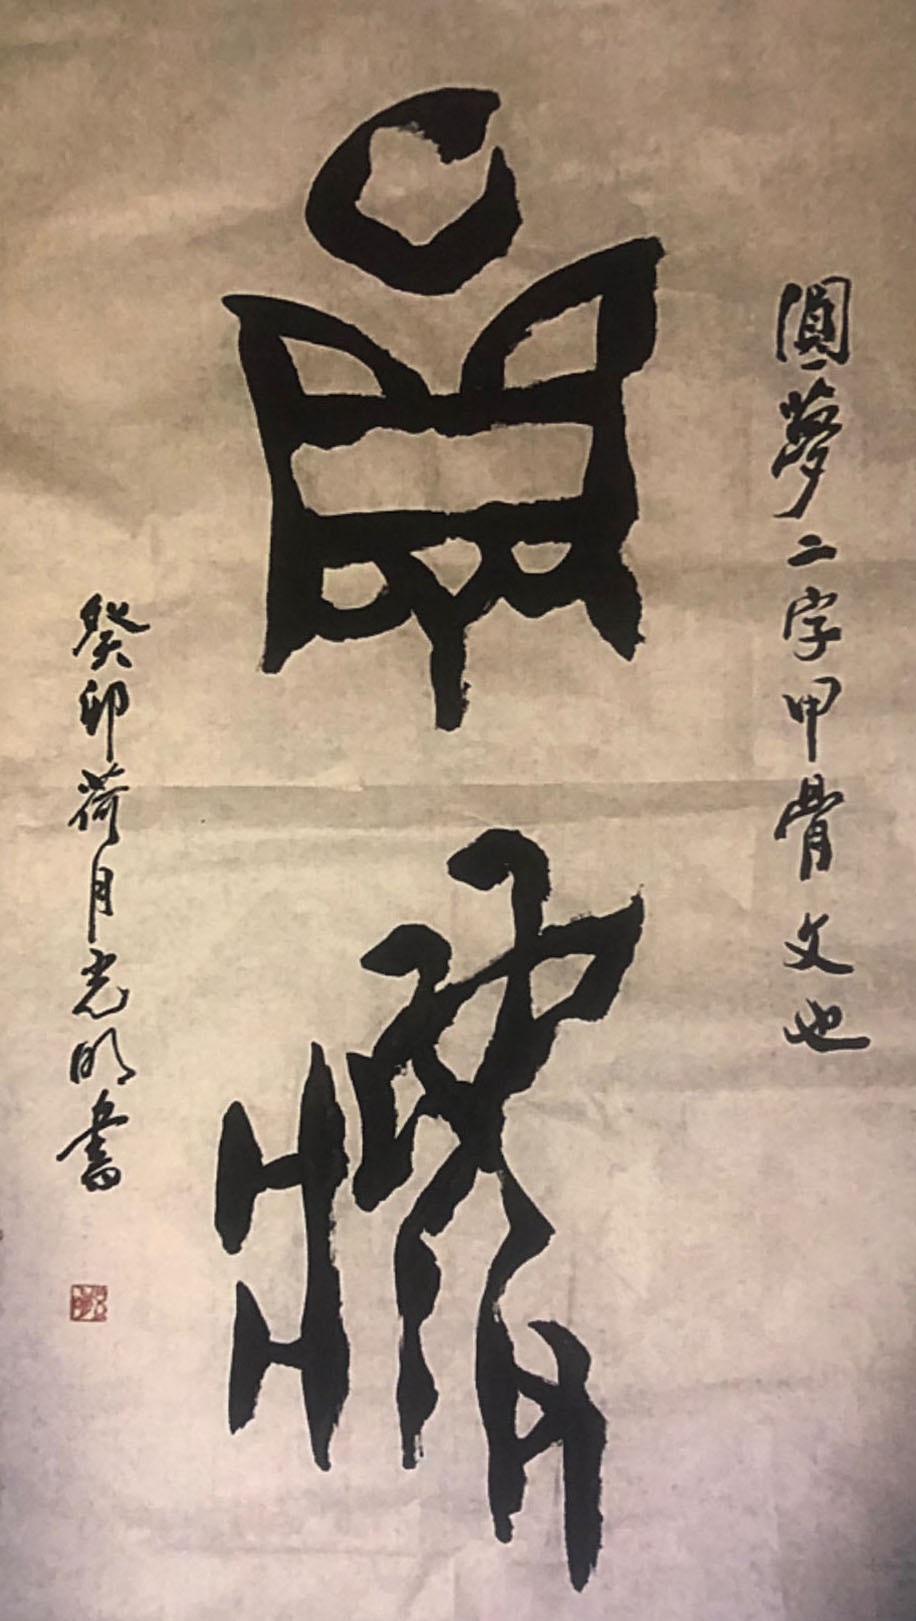 圓夢二字甲骨文也
圓夢
癸卯荷月光明書